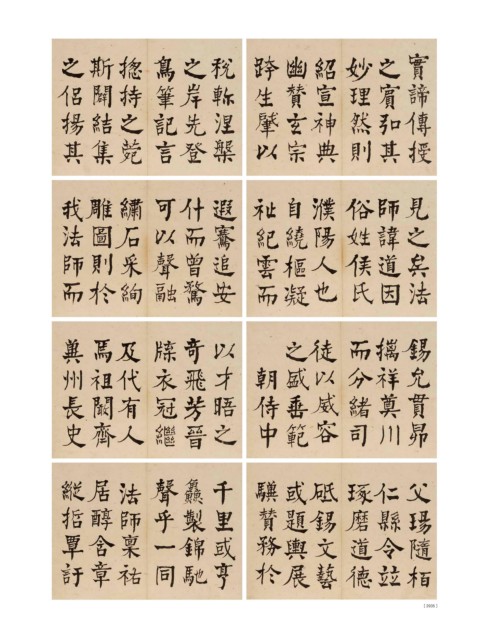 稅軫涅槃
之岸先登
鳥筆記言
揔持之菀
斯闢結集
之侶揚其
實諦傳授
之賓弘其
妙理然則
紹宣神典
幽贊玄宗
跨生肇以
遐騖追安
什而曾驚
可以聲融
繡石采絢
雕圖則於
我法師而
見之矣法
師諱道因
俗姓侯氏
濮陽人也
自繞樞凝
祉紀雲而
錫允貫昴
摛祥奠川
而分緒司
徒以威容
之盛垂範
朝侍中
以才晤之
奇飛芳晉
牒衣冠繼
及代有人
焉祖闞齊
冀州長史
父瑒隨柏
仁縣令竝
琢磨道德
砥錫文藝
或題輿展
驥贊務於
千里或亨
鱻製錦馳
聲乎一同
法師稟祐
居醇含章
縱哲覃訏